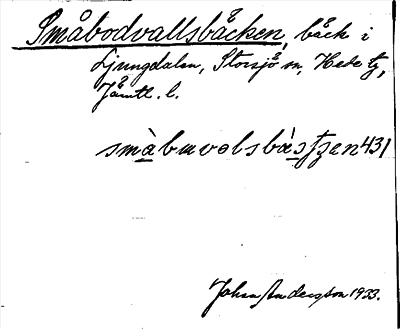 Småbodvallsbäcken, bäck i
Ljungdalen, Storsjö sn, Hede tg,
Jämtl. l.
smàbuvəlsbàstʃen 431
Johan Andersson 1933.